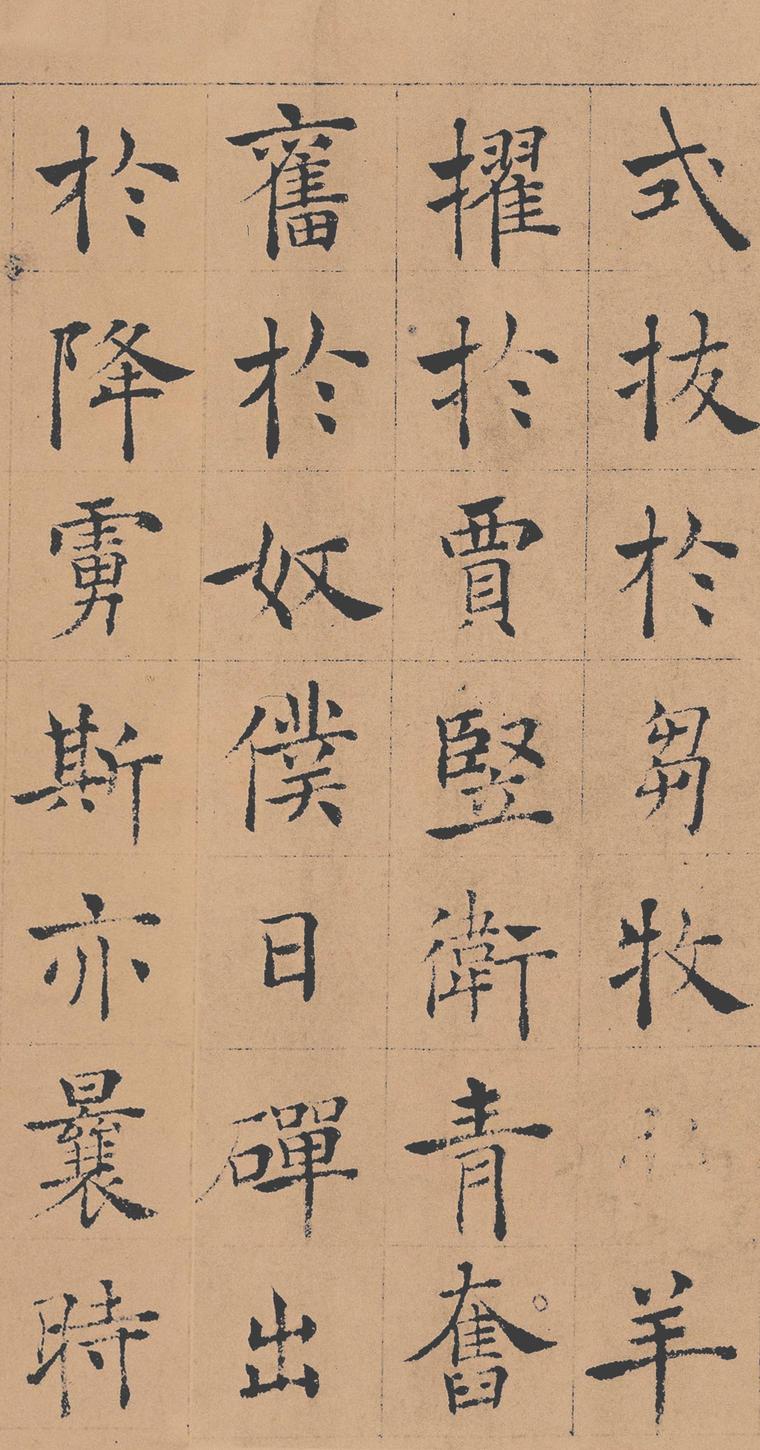 式拔於芻牧羊
擢於賈竪衛青奮
奮於奴僕日磾出
於降虜斯亦曩時